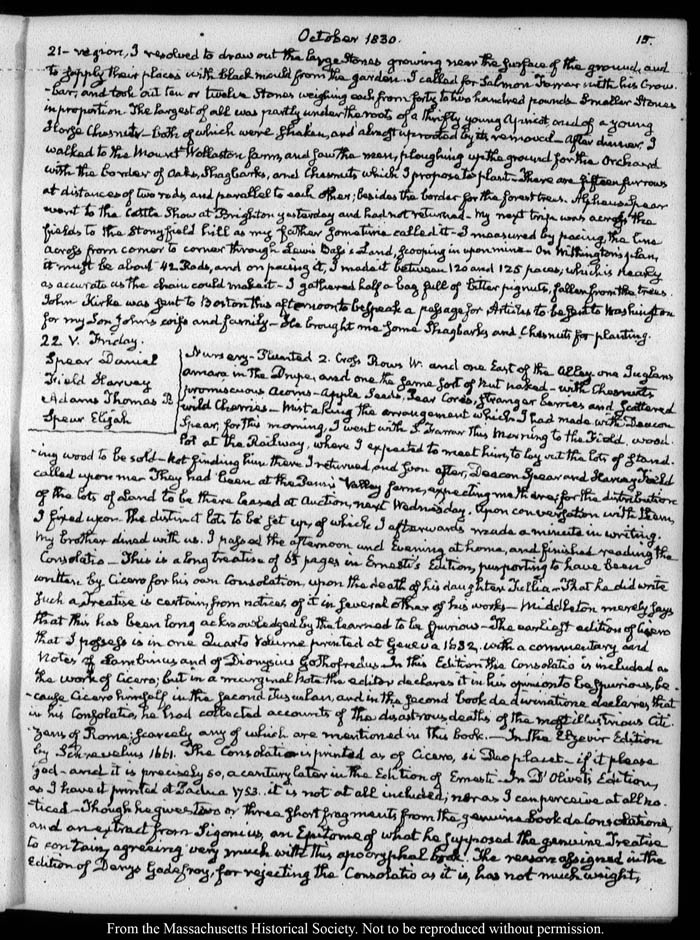 October 1830.
15.
21- region, I resolved to draw out the large stones growing near the surface of the ground, and
to supply their places with black mould from the garden. I called for Salmon Farrar with his Crow-
bar, and took out ten or twelve Stones weighing each from forty to two hundred pounds. Smaller Stones
in proportion. The largest of all was partly under the roots of a thrifty young Apricot and of a young
Horse Chesnut—both of which were shaken, and almost uprooted by its removal—After dinner, I
walked to the Mount Wollaston farm, and saw the men, ploughing up the ground for the Orchard
with the border of Oaks, Shagbarks, and Chesnuts which I propose to plant—There are fifteen furrows
at distances of two rods and parallel to each other; besides the border for the forest trees. Alpheus Spear
went to the Cattle Show at Brighton yesterday and had not returned—My next trip was across the
fields to the Stonyfield hill as my father sometime called it—I measured by pacing the line
across from corner to corner through Lewis Bass's Land, scooping in upon mine—On Withington's plan,
it must be about 42 Rods, and on pacing it, I made it between 120 and 125 paces, which is nearly
as accurate as the chain could make it—I gathered half a bag full of bitter pignuts, fallen from the trees.
John Kirke was sent to Boston this afternoon to bespeak a passage for Articles to be sent to Washington
for my Son John's wife and family—He brought me some Shagbarks and Chesnuts for planting.
22 V. Friday.
Spear Daniel
Field Harvey
Adams Thomas B
Spear Elijah
Nursery—Planted 2. Cross Rows W. and one East of the Alley. one Juglans
amara in the Drupe, and one the same sort of Nut naked—with Chesnuts
promiscuous Acorns—Apple Seeds, Pear Cores, Stranger berries and Scattered
wild Cherries—Mistaking the arrangement which I had made with Deacon
Spear, for this morning, I went with S Farrar This Morning to the Field, wood-
lot at the Railway, where I expected to meet him, to lay out the lots of stand-
-ing wood to be sold—Not finding him there I returned and soon after, Deacon Spear and Harvey Field
called upon me. They had been at the Penn's Valley farm, expecting me there for the distribution
of the lots of Land to be there leased at Auction, next Wednesday. Upon conversation with them,
I fixed upon the distinct lots to be set up, of which I afterwards made a minute in writing.
My brother dined with us. I passed the afternoon and Evening at home, and finished reading the
Consolatio—This is a long treatise of 65 pages in Ernesti's Edition, purporting to have been
written by Cicero for his own Consolation, upon the death of his daughter Tullia—That he did write
such a Treatise is certain, from notices of it in several other of his works—Middleton merely says
that this has been long acknowledged by the learned to be spurious—The earliest edition of Cicero
that I possess is in one Quarto Volume printed at Geneva 1632, with a commentary and
Notes of Lambinus and of Dionysius Gothofredus—In this Edition the Consolatio is included as
the work of Cicero; but in a marginal Note the editor declares it in his opinion to be spurious, be-
cause Cicero himself in the second Tusculan, and in the second book de divinatione declares, that
in his Consolatio, he had collected accounts of the disastrous deaths of the most illustrious Citi-
zens of Rome; scarcely any of which are mentioned in this book.—In the Elzevir Edition
by Schrevelius 1661. The Consolatio is printed as of Cicero, si Deo placet—if it please
god—and it is precisely so, a century later in the Edition of Ernesti—In D'Olivet's Edition,
as I have it printed at Padua 1753. it is not at all included; nor as I can perceive at all no-
ticed—Though he gives two or three short fragments from the genuine book de Consolatione,
and an extract from Sigonius, an Epitome of what he supposed the genuine Treatise
to contain, agreeing very much with this apocryphal book. The reason assigned in the
edition of Denys Godefroy, for rejecting the Consolatio as it is, has not much weight,
From the Massachusetts Historical Society. Not to be reproduced without permission.